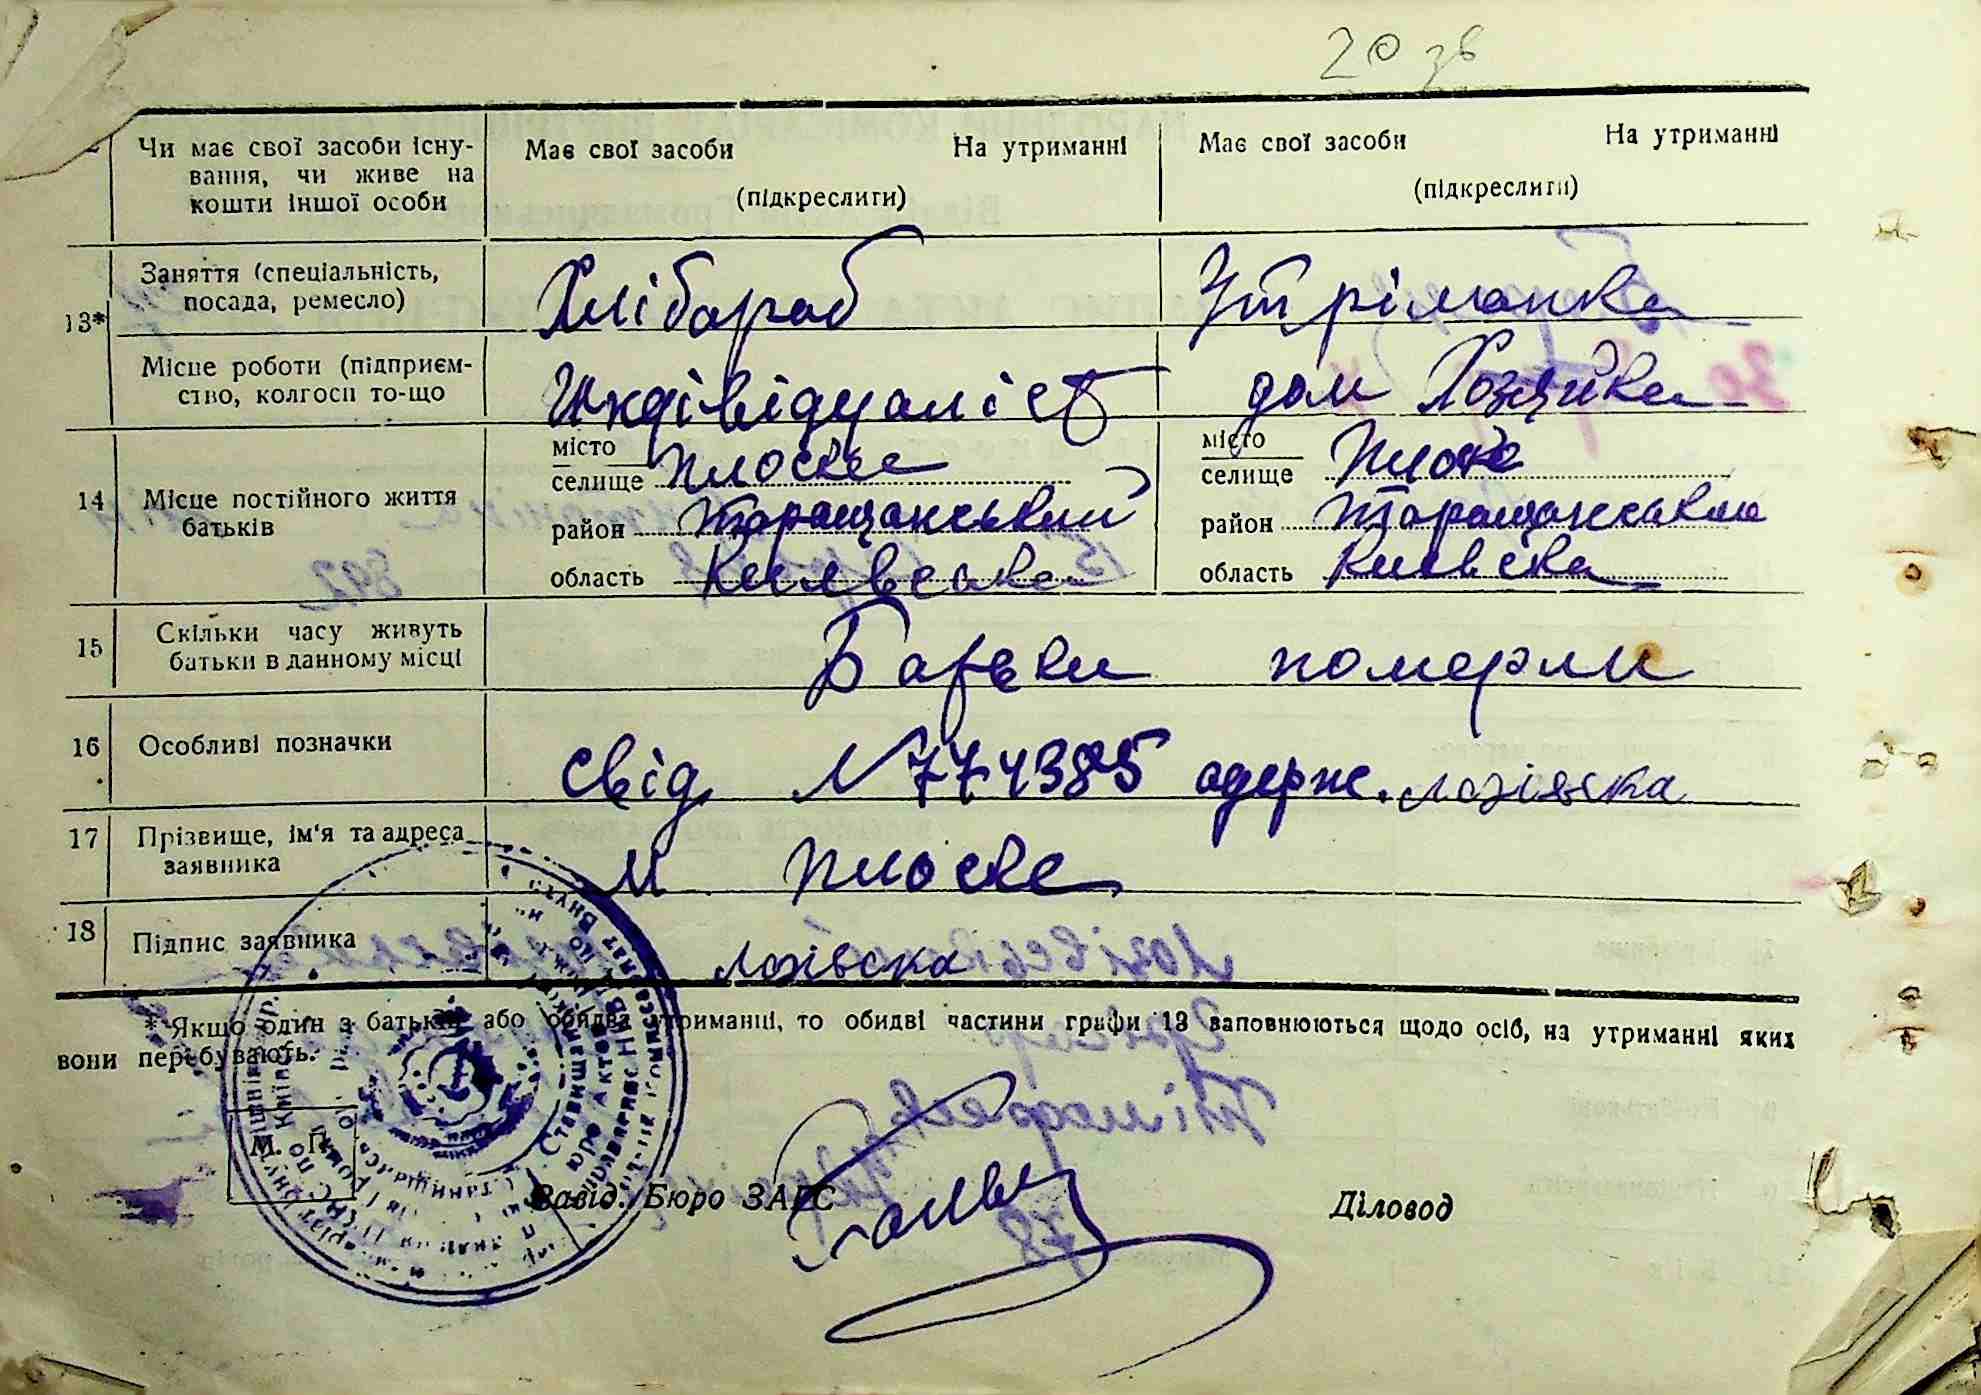 20 зв
Чи має свої засоби існу-
вання, чи живе на
кошти іншої особи
Має свої засоби На утриманні
(підкреслиги)
Має свої засоби На утриманні
(підкреслиги)
13*
Заняття (спеціальність,
посада, ремесло)
Хлібораб
Утріманка
Місце роботи (підприєм-
ство, колгосп то-що
Индівідуаліст
дом Хозяйка
14
Місце постійного життя
батьків
місто
селище Плоске
район Таращанський
область Киявеска
місто
селище Плоске
район Таращанський
область Киевска
15
Скільки часу живуть
батьки в данному місці
Батьки померли
16
Особливі позначки
свід N 774385 одерж. лозівска
17
Прізвище, ім'я та адреса
заявника
м Плоске
18
Підпис заявника
лозівска
* Якщо один з батьків або обидва утриманні, то обидві частини графи 13 заповнюються щодо осіб, на утриманні яких
вони перебувають.
М. П.
Завід. Бюро ЗАГС
Діловод